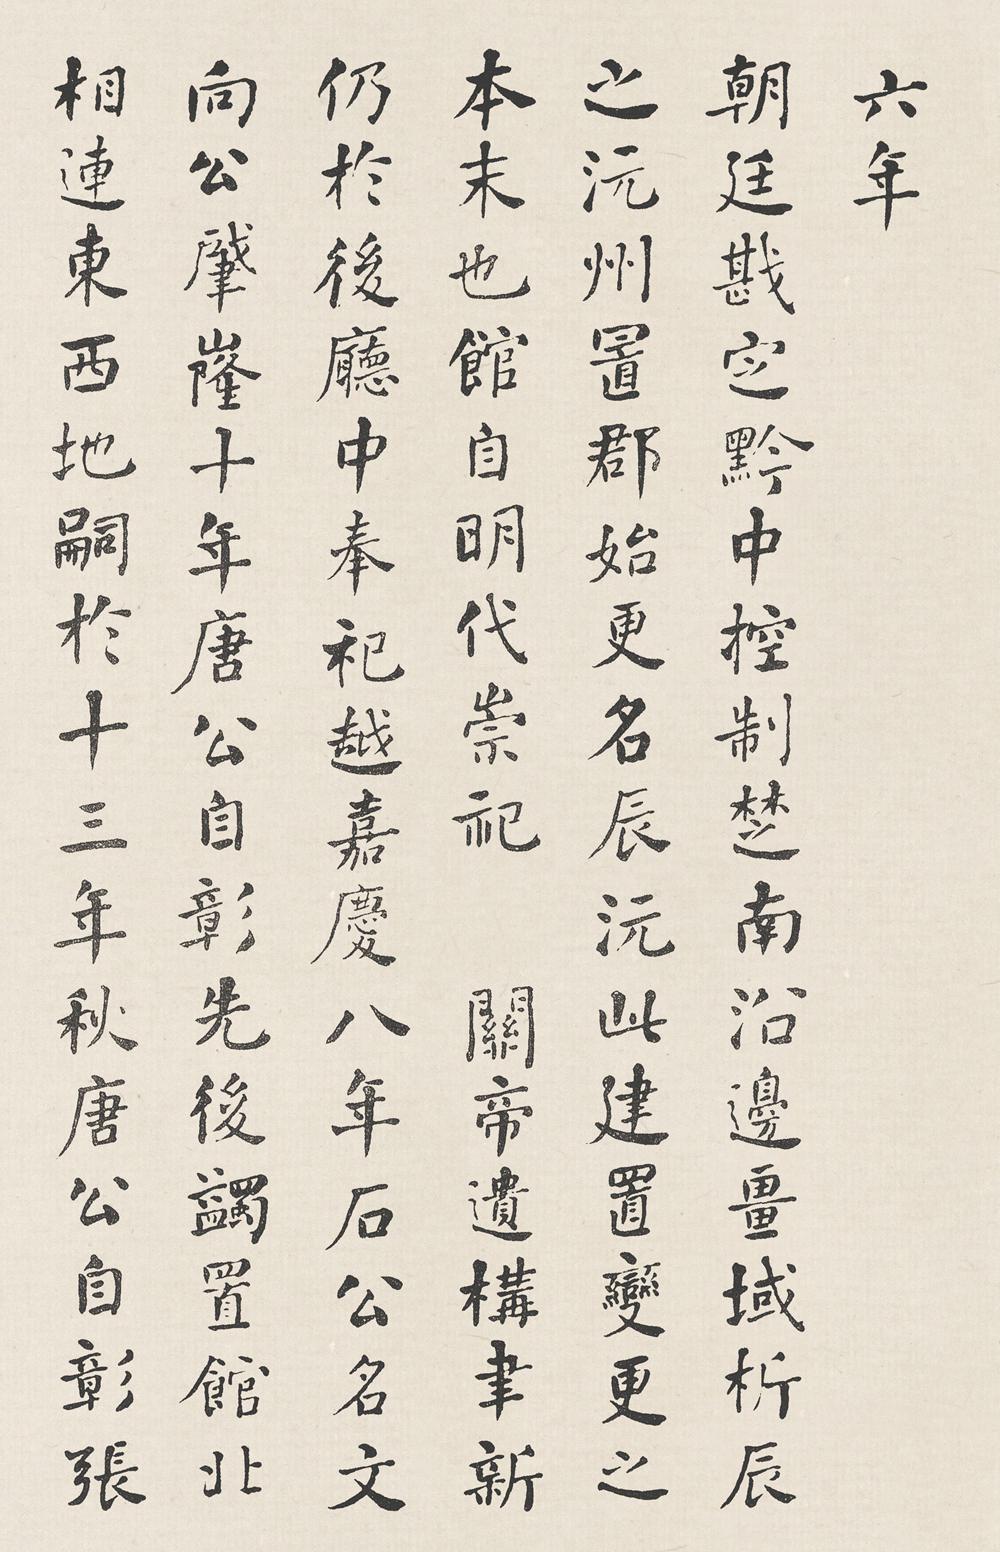 六年
朝廷戡定黔中控制楚南沿邊畺域析辰
之沅州置郡始更名辰沅此建置變更之
本末也館自明代崇祀 關帝遺構聿新
仍於後廳中奉祀越嘉慶八年石公名文
向公肇隆十年唐公自彰先後蠲置館北
相連東西地嗣於十三年秋唐公自彰張